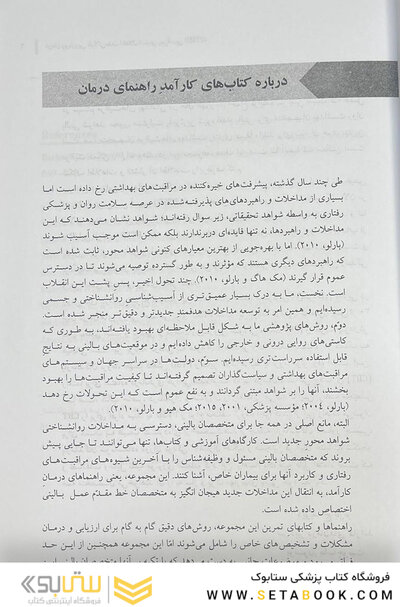 درباره کتاب‌های کارآمدِ راهنمای درمان
طی چند سال گذشته، پیشرفت‌های خیره‌کننده در مراقبت‌های بهداشتی رخ داده است اما
بسیاری از مداخلات و راهبردهای پذیرفته‌شده در عرصه سلامت روان و پزشکی
رفتاری به واسطه شواهد تحقیقاتی، زیر سوال رفته‌اند؛ شواهد نشان می‌دهند که این
مداخلات و راهبردها، نه تنها فایده‌ای دربرندارند بلکه ممکن است موجب آسیب شوند
(بارلو، ۲۰۱۰). اما با بهره‌جویی از بهترین معیارهای کنونی شواهد محور، ثابت شده است
که راهبردهای دیگری هستند که مؤثرند و به طور گسترده توصیه می‌شوند تا در دسترس
عموم قرار گیرند (مک هاگ و بارلو، ۲۰۱۰). چند تحول اخیر، پس پشت این انقلاب
است. نخست، ما به درک بسیار عمیق‌تری از آسیب‌شناسی روانشناختی و جسمی
رسیده‌ایم و همین امر به توسعه مداخلات هدفمندِ جدیدتر و دقیق‌تر منجر شده است.
دوّم، روش‌های پژوهشی ما به شکل قابل ملاحظه‌ای بهبود یافته‌اند، به طوری که
کاستی‌های روایی درونی و خارجی را کاهش داده‌ایم و در موقعیت‌های بالینی به نتایج
قابل استفاده سرراست‌تری رسیده‌ایم. سوّم، دولت‌ها در سراسر جهان و سیستم‌های
مراقبت‌های بهداشتی و سیاست‌گذاران تصمیم گرفته‌اند تا کیفیت مراقبت‌ها را بهبود
بخشند، آنها را بر شواهد مبتنی گردانند و به نفع عموم است که این تحولات رخ دهد
(بارلو، ۲۰۰۴؛ مؤسسه پزشکی، ۲۰۰۱، ۲۰۱۵؛ مک هیو و بارلو، ۲۰۱۰).
البته، مانع اصلی در همه جا برای متخصصان بالینی، دسترسی به مداخلات روانشناختی
شواهد محور جدید است. کارگاه‌های آموزشی و کتاب‌ها، تنها می‌توانند تا جایی پیش
بروند که متخصصان بالینی مسئول و وظیفه‌شناس را با آخرین شیوه‌های مراقبت‌های
رفتاری و کاربرد آنها برای بیماران خاص، آشنا کنند. این مجموعه، یعنی راهنماهای درمان
کارآمد، به انتقال این مداخلات جدید هیجان انگیز به متخصصان خط مقدّم عمل بالینی
اختصاص داده شده است.
راهنماها و کتابهای تمرین این مجموعه، روش‌های دقیق گام به گام برای ارزیابی و درمان
مشکلات و تشخیص‌های خاص را شامل می‌شوند امّا این مجموعه همچنین از این حد
ستابوک
فروشگاه اینترنتی کتاب
فروشگاه کتاب پزشکی ستابوک
WWW.SETABOOK.COM